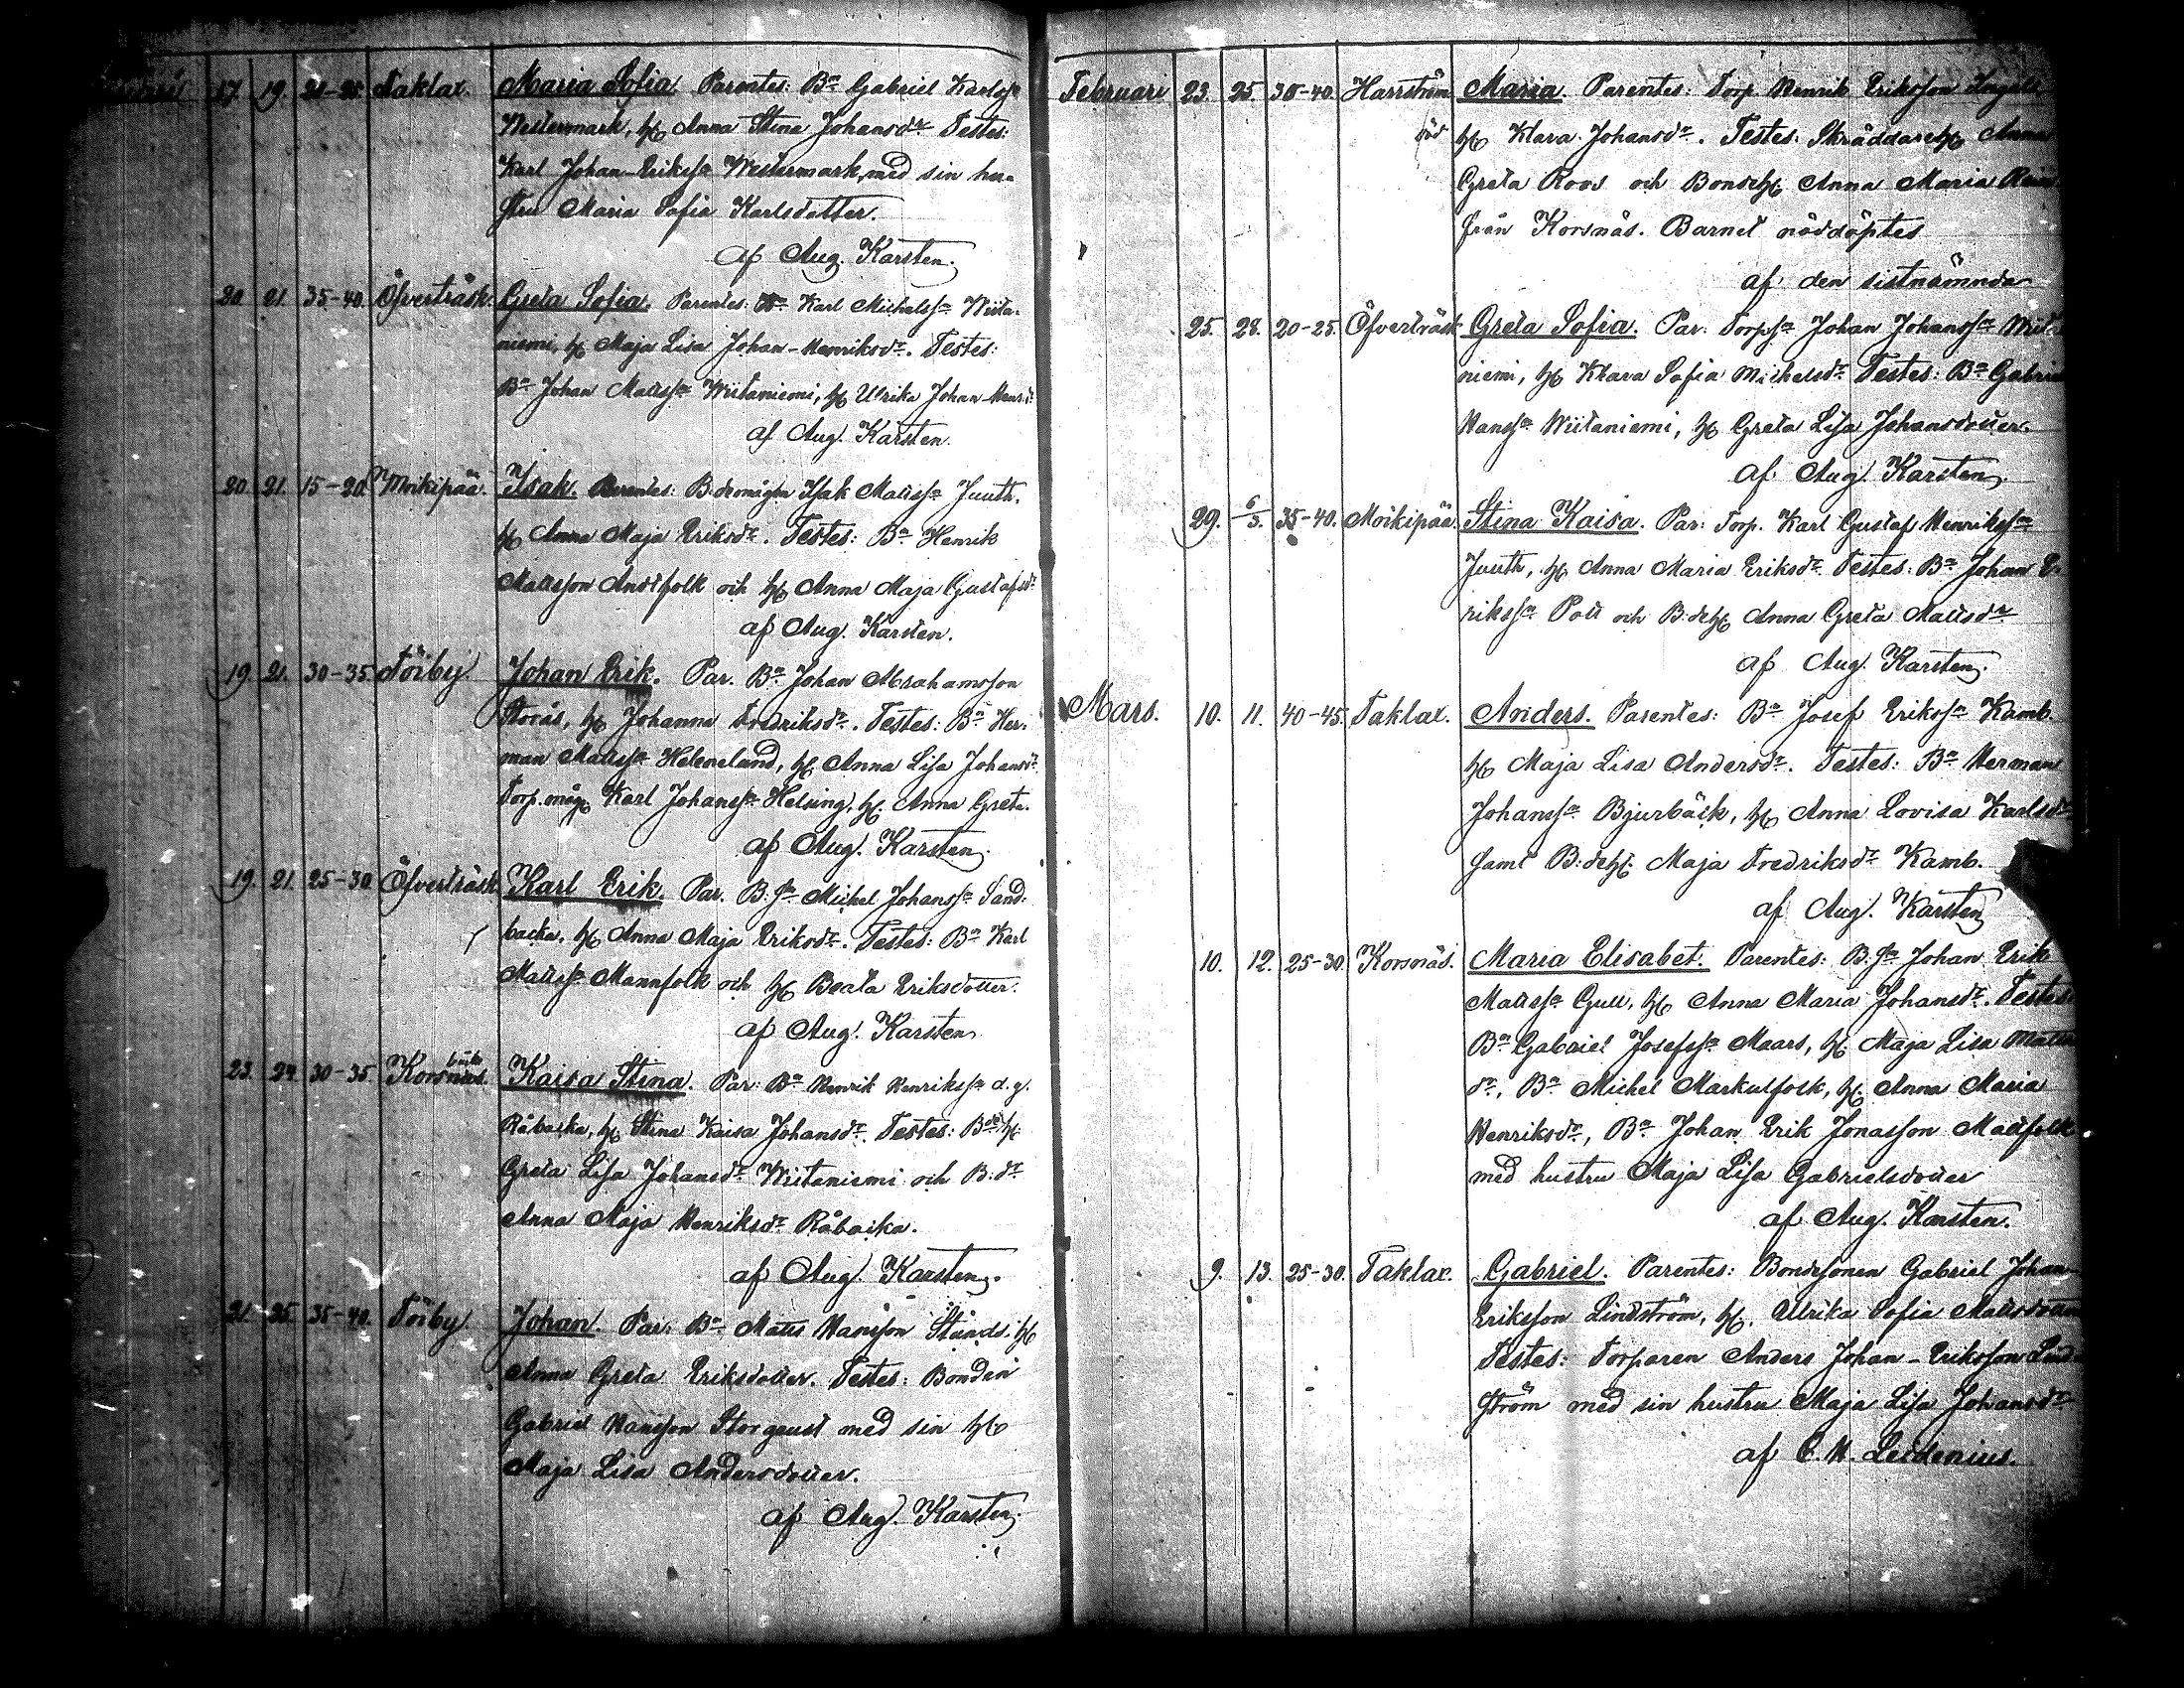 17. 19. 20-25. Taklax. Maria Sofia. Parentes: Bn Gabriel Karlss:n
Westermark, h. Anna Stina Johansdr Testes:
Karl Johan-Erikss:n Westermark, med sin hu-
stru Maria Sofia Karlsdotter.
af Aug. Karsten.
20. 21. 35-40. Öfverträsk. Greta Sofia. Parentes: Bn Karl Michelss:n Wiita-
niemi, h. Maja Lisa Johan-Henriksdr. Testes:
Bn Johan Matss:n Wiitaniemi, h. Ulrika Johan-Henr:dr
af Aug. Karsten.
20. 21. 15-20. Moikipää. Isak. Parentes: B:demågen Isak Matss:n Juuth.
h. Anna Maja Eriksdr. Testes: Bn Henrik
Matsson Andtfolk och h. Anna Maja Gustafsdr
af Aug. Karsten.
19. 21. 30-35. Töjby. Johan Erik. Par. Bn Johan Abrahamsson
Storås, h. Johanna Fredriksdr. Testes: Bn Her-
man Matss:n Heleneland, h. Anna Lisa Johansdr.
Torp.måg Karl Johanss:n Helsing, h. Anna Greta.
af Aug. Karsten.
19. 21. 25-30. Öfverträsk. Karl Erik. Par. B:sn Michel Johanss:n Sand-
backa, h. Anna Maja Eriksdr. Testes: Bn Karl
Matss:n Mannfolk och h. Beata Eriksdotter.
af Aug. Karsten.
23. 24. 30-35. Korsbäck. Kaisa Stina. Par: Bn Henrik Henrikss:n d.y.
Råbacka, h. Stina Kaisa Johansdr. Testes: Bdeh.
Greta Lisa Johansdr Wiitaniemi och B.dr
Anna Maja Henriksdr Råbacka.
af Aug. Karsten.
21. 25. 35-40. Töjby. Johan. Par: Bn Mats Hansson Ständs. h.
Anna Greta Eriksdotter. Testes: Bonden
Gabriel Hansson Storgeust med sin h.
Maja Lisa Andersdotter.
af Aug. Karsten.
Februari 23. 25. 35-40. Harrström Maria. Parentes: Torp. Henrik Eriksson Ingels
nöd h. Klara Johansdr. Testes: Skräddareh. Anna
Greta Roos och Bondeh. Anna Maria
från Korsnäs. Barnet nöddöptes
af den sistnämnda
25. 28. 20-25. Öfverträsk Greta Sofia. Par: Torps:n Johan Johanss:n Wiita-
niemi, h. Klara Sofia Michelsdr. Testes: Bn Gabriel
Hanss:n Wiitaniemi, h. Greta Lisa Johansdotter.
af Aug. Karsten.
29. 6/3. 35-40. Moikipää. Stina Kaisa. Par: Torp. Karl Gustaf Henrikss:n
Juuth, h. Anna Maria Eriksdr. Testes: Bn Johan E-
rikss:n Pott och B:deh. Anna Greta Matsdr
af Aug. Karsten.
Mars. 10. 11. 40-45. Taklax. Anders. Parentes: Bn Josef Erikss:n Kamb.
h. Maja Lisa Andersdr. Testes: Bn Herman
Johanss:n Bjurbäck, h. Anna Lovisa Karlsdr
samt B:deh. Maja Fredriksdr Kamb.
af Aug. Karsten
10. 12. 25-30. Korsnäs. Maria Elisabet. Parentes: B.sn Johan Erik
Matss:n Gull, h. Anna Maria Johansdr. Testes:
Bn Gabriel Josefss:n Maars, h. Maja Lisa Mats-
dr, Bn Michel Markulfolk, h. Anna Maria
Henriksdr, Bn Johan Erik Jonasson Matsfolk
med hustru Maja Lisa Gabrielsdotter
af Aug. Karsten.
9. 13. 25-30. Taklax. Gabriel. Parentes: Bondesonen Gabriel Johan-
Eriksson Lindström, h. Ullrika Sofia Matsdotter
Testes: Torparen Anders Johan-Eriksson Lind-
ström med sin hustru Maja Lisa Johansdr
af C. H. Leidenius.